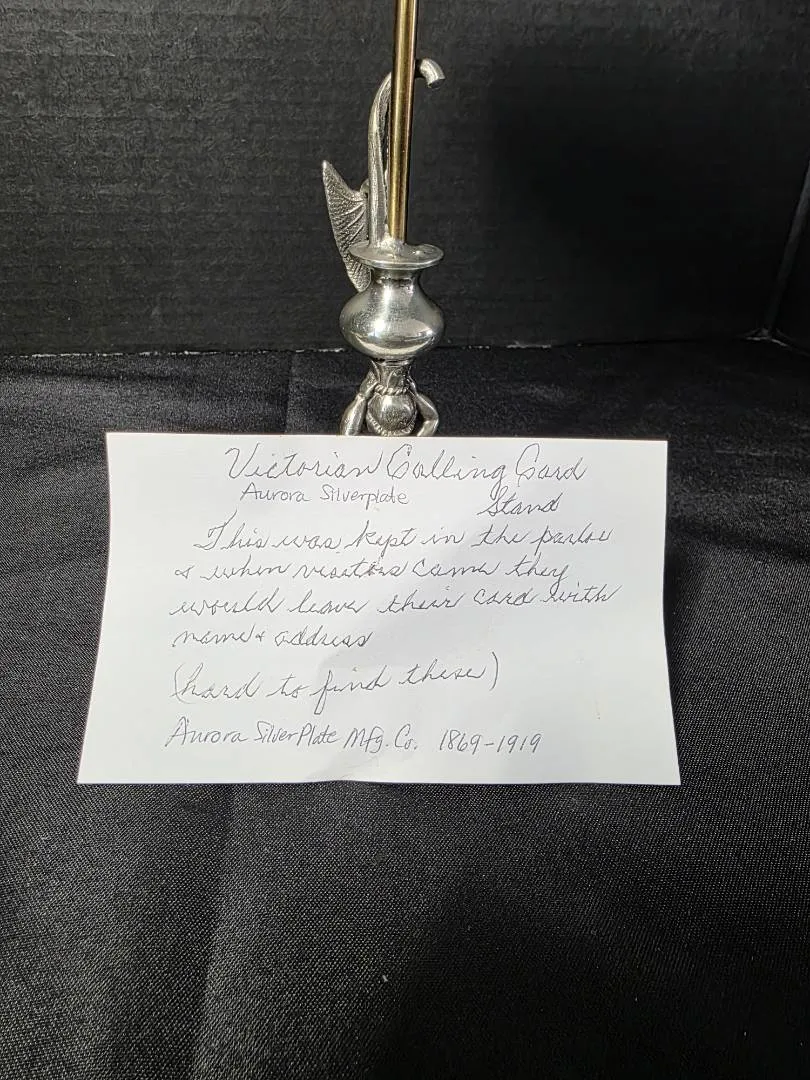 Victorian Calling Card
Aurora Silverplate Stand
This was kept in the parlor
& when visitors came they
would leave their card with
name & address
(hard to find these)
Aurora SilverPlate Mfg. Co. 1869-1919